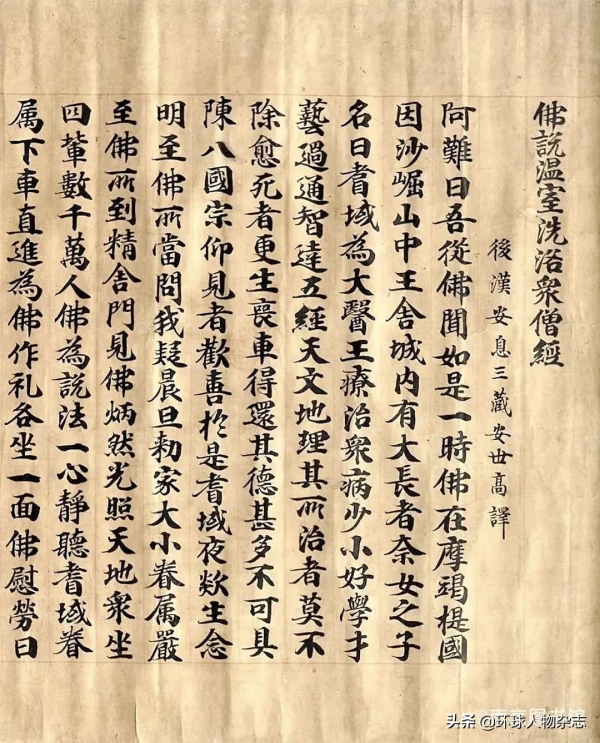 佛說温室洗浴衆僧經
後漢安息三藏安世髙譯
阿難曰吾從佛聞如是一時佛在摩竭提國
因沙崛山中王舍城内有大長者柰女之子
名曰耆域為大醫王療治衆病少小好學才
藝過通智達五經天文地理其所治者莫不
除愈死者更生喪車得還其德甚多不可具
陳八國宗仰見者歡善於是耆域夜欻生念
明至佛所當問我疑晨旦勑家大小眷属嚴
至佛所到精舍門見佛炳然光照天地衆坐
四輩數千萬人佛為說法一心靜聽耆域眷
属下車直進為佛作礼各坐一面佛慰勞曰
南京图书馆
头条@环球人物杂志